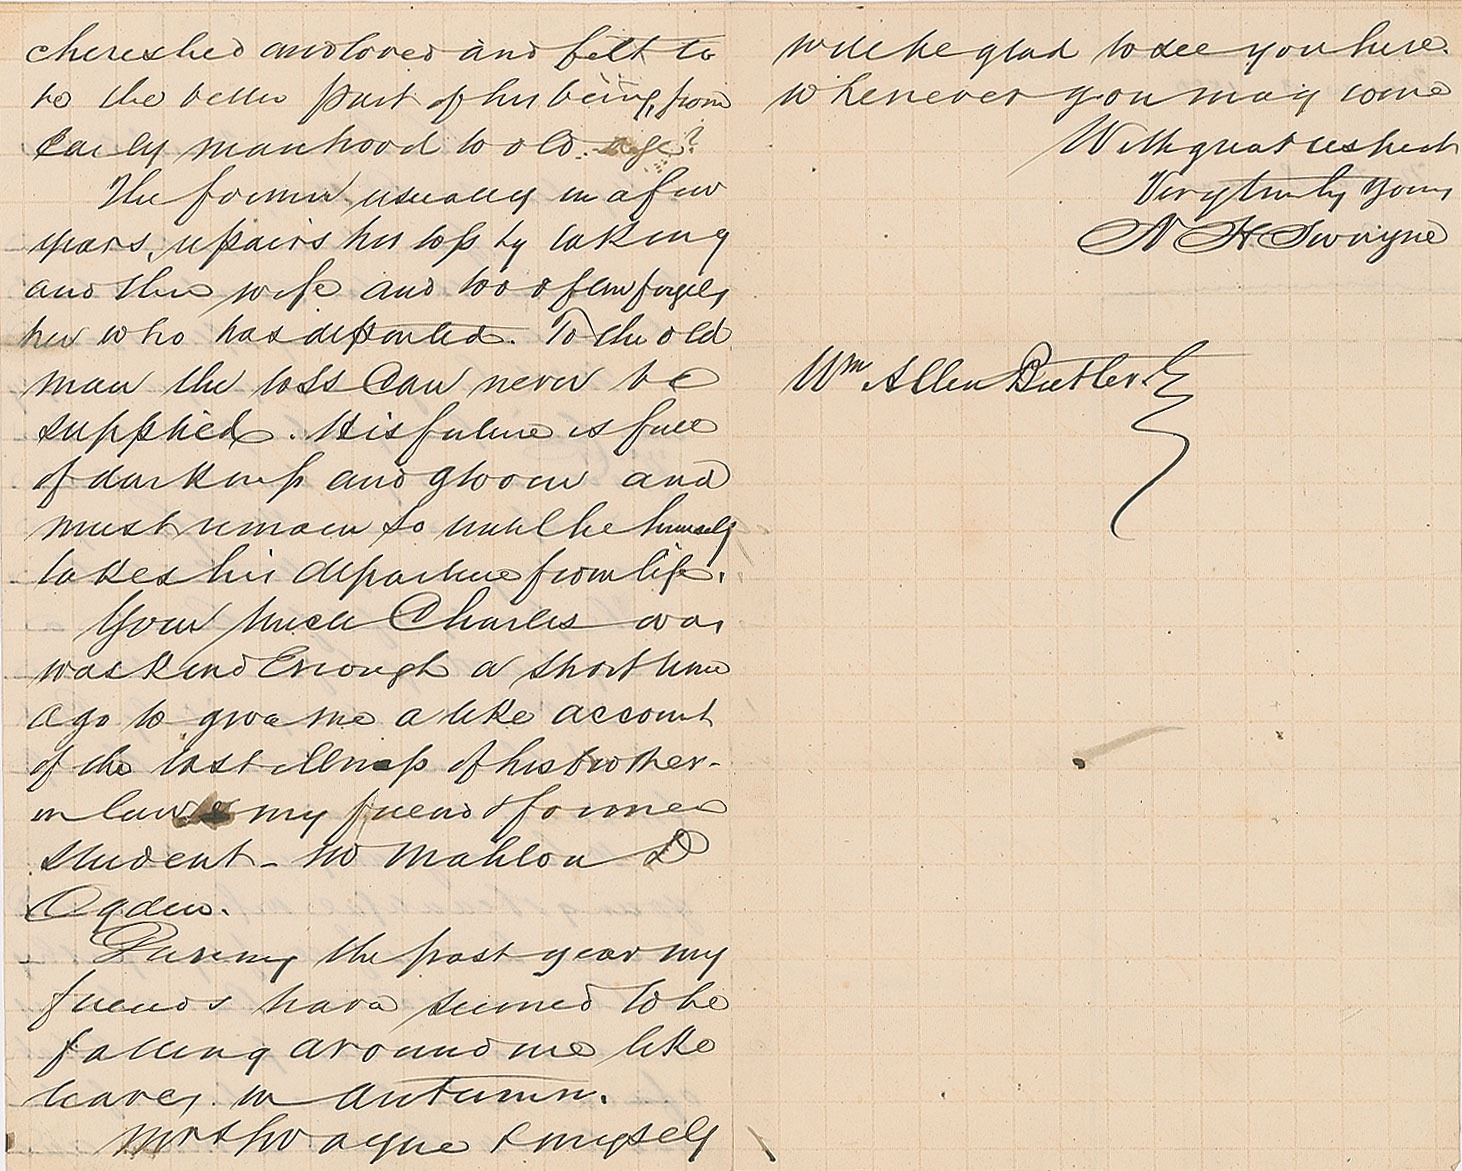 cherished and loved and felt to
be the better part of his being, from
early manhood to old age?
The former usually in a few
years, repairs his loss by taking
another wife and too often forgets
her who has departed. To the old
man the loss can never be
supplied. His future is full
of darkness and gloom and
must remain so until he himself
takes his departure from life.
Your Uncle Charles was
was kind enough a short time
ago to give me a like account
of the last illness of his brother-
in law & my friend & former
student - Mr Mahlon D
Ogden.
During the past year my
friends have seemed to be
falling around me like
leaves in autumn.
Mrs Swayne & myself
will be glad to see you here.
whenever you may come
With great respect
Very truly yours
N H Swayne
Wm Allen Butler